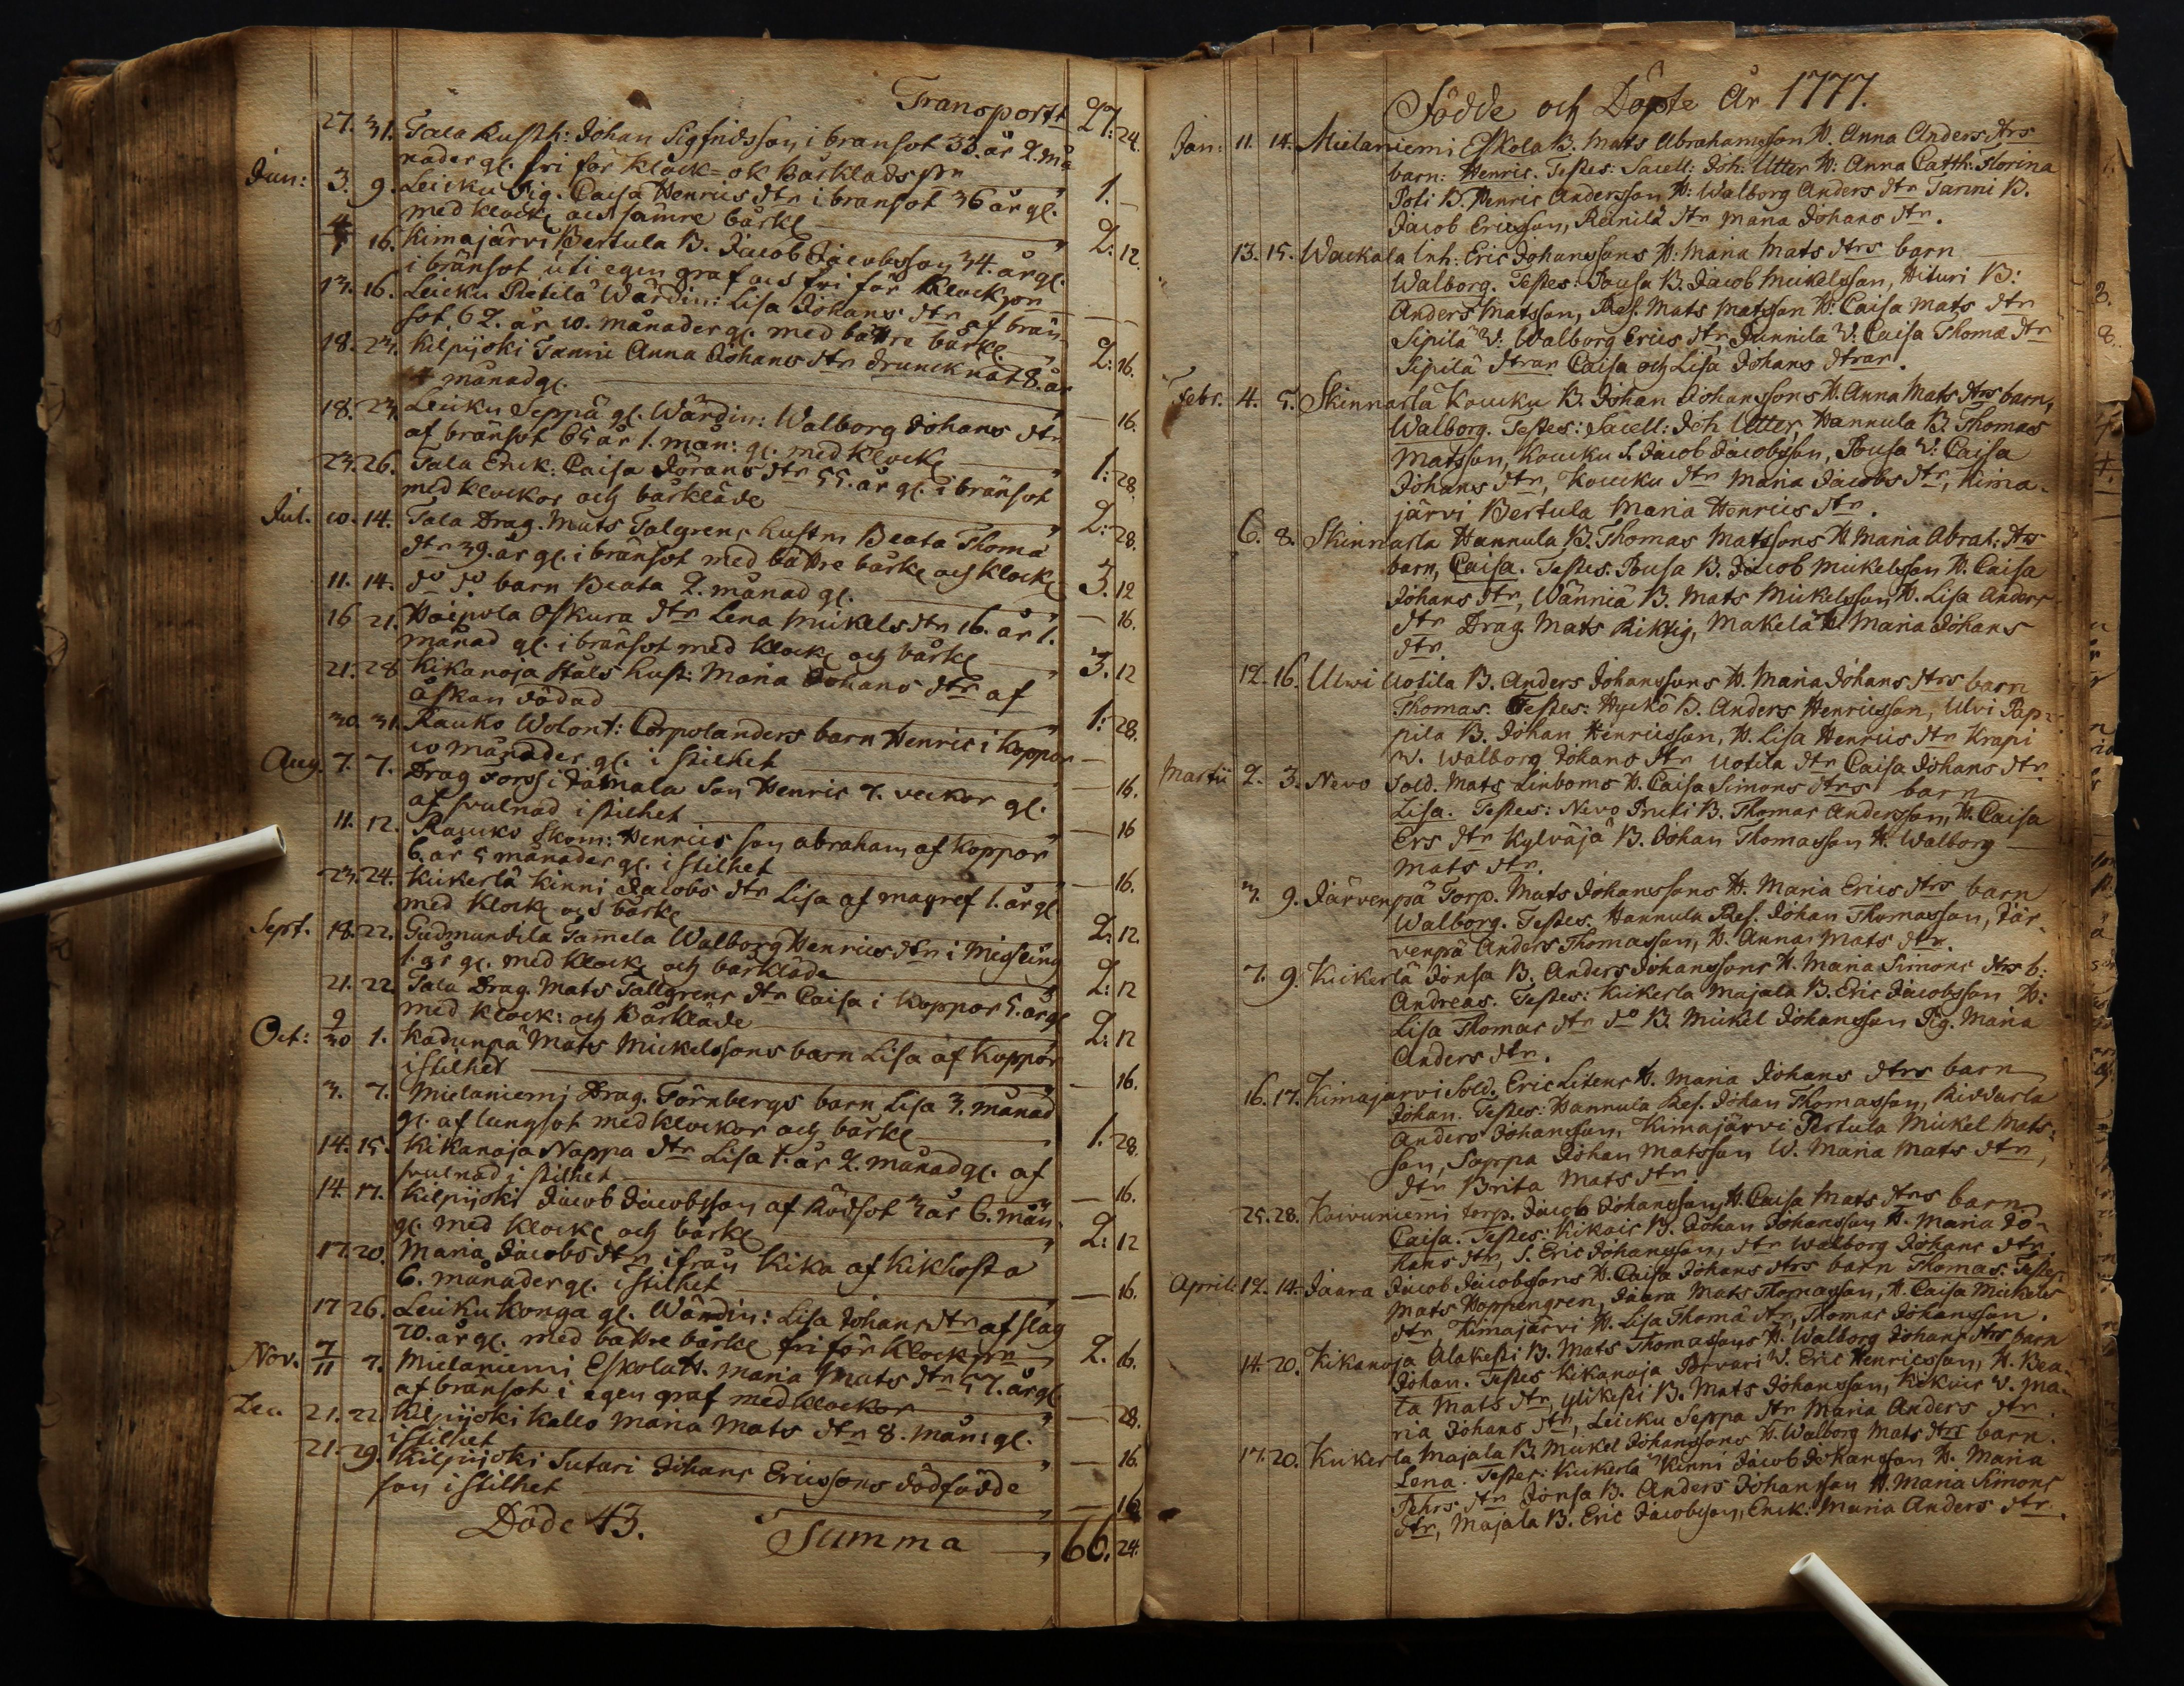 Transport 27: 24.
27. 31. Tala Rusth: Johan Sigfridsson i bränsot 33. år 2. må-
nader gl. fri för klock- ok Bårkläds pn
Jun: 3. 9. Leicku Pig. Caisa Henrics dtr i bränsot 36 år gl.
med klock och sämre bårkl — 1. —
4/5 16. Kimajärvi Bertula B. Jacob Jacobsson 34. år gl. 2: 12.
i bränsot uti egen graf och fri för klock pn
13. 16. Leicku Pietilä Wärdin: Lisa Johans dtr af brän-
sot 62. år 10. månader gl. med bättre bårkl. — —
18. 23. Kilpijoki Tanni Anna Johans dtr druncknat 8. år 2: 16.
4 månad gl. —
18. 23. Leicku Seppä gl. Wärdin: Walborg Johans dtr — 16.
af bränsot 65 år 1. mån: gl. med klock
23. 26. Tala Enck: Caisa Jörans dtr 55. år gl. i bränsot 1: 28.
med klockor och bårkläde
Jul. 10. 14. Tala Drag. Mats Talgrens hustru Beata Thomæ 2: 28.
dtr 39. år gl. i bränsot med bättre bårkl och klock
11. 14. do do barn Beata 2. månad gl. 3. 12
16 21. Haipola Oskura dtr Lena Mickels dtr 16. år 1. — 16.
månad gl. i bränsot med klock och bårkl
21. 28 Kikanoja Ståls hust: Maria Johans dtr af 3. 12
åskan dödad
30. 31. Rauko Wolont: Corpolanders barn Henric i koppor 1: 28.
10 månader gl. i stilhet —
Aug. 7. 7. Drag Forss i Jamala son Henric 7. veckor gl. — 16.
af svulnad i stilhet
11. 12. Rauko Skom: Henrics son Abraham af koppor — 16
6. år 5 månader gl. i stilhet
23. 24. Kukerlä Kinni Jacobs dtr Lisa af magref 1. år gl — 16.
med klock och bårkl
Sept. 18. 22. Gudmundila Tamela Walborg Henrics dtr i Missling 2: 12.
1. år gl. med klock och bårkläde
21. 22. Tala Drag. Mats Tallgrens dtr Caisa i koppor 5. år gl 2: 12
med klock: och Bårkläde
Oct: 9/30 1. Kadunpä Mats Mickelssons barn Lisa af koppor 2: 12
i stilhet
3. 7. Mielaniemi Drag. Törnbergs barn Lisa 3. månad — 16.
gl. af lungsot med klockor och bårkl
14. 15. Kikanoja Nappa dtr Lisa 1. år 2. månad gl. af 1. 28.
svulnad i stilhet
14. 17. Kilpijoki Jacob Jacobsson af Rödsot 3 år 6. mån — 16.
gl. med klock och bårkl
17. 20. Maria Jacobs dtr ifrån Kika af Kikhosta 2: 12
6. månader gl. i stilhet
17 26. Leicku Konga gl. Wärdin: Lisa Johans dtr af slag — 16.
70. år gl. med bättre bårkl fri för klock pn
Nov. 7/11 7. Mielaniemi Eskola H. Maria Mats dtr 57. år gl 2. 16.
af bränsot i egen graf med klockor
Dec. 21. 22. Kilpijoki Kallo Maria Mats dtr 8. mån: gl. — 28.
i stilhet
21. 29. Kilpijoki Sutari Johans Ericssons dödfödde — 16.
son i stilhet — 16.
Döde 43. Summa — 66. 24.
Födde och Döpte År 1777.
Jan: 11. 14. Mielaniemi Eskola B. Mats Abrahamsson H. Anna Anders dtrs
barn: Henric. Testes: Sacell: Joh: Utter H: Anna Catth: Florina
Poti B. Henric Andersson H: Walborg Anders dtr Tanni B.
Jacob Ericsson, Reinilä dtr Maria Johans dtr.
13. 15. Wackala Inh: Eric Johanssons H: Maria Mats dtrs barn
Walborg. Testes: Pousa B. Jacob Mickelsson, Hituri B:
Anders Matsson, Ref. Mats Matsson H. Caisa Mats dtr
Sipilä W: Walborg Erics dtr Junnila W: Caisa Thomæ dtr
Sipilä dtrar Caisa och Lisa Johans dtrar.
Febr. 4. 5. Skinnarla Koucku B. Johan Johanssons H. Anna Mats dtrs barn,
Walborg. Testes: Sacell: Joh Utter, Hannula B. Thomas
Matsson, Koucku S. Jacob Jacobsson, Pousa W: Caisa
Johans dtr, Koucku dtr Maria Jacobs dtr, Kima-
järvi Bertula Maria Henrics dtr.
6. 8. Skinnarla Hannula B. Thomas Matssons H Maria Abrah: dtrs
barn, Caisa. Testes: Pousa B. Jacob Mickelsson H. Caisa
Johans dtr, Wänniä B. Mats Mickelsson H. Lisa Anders
dtr Drag Mats Ricktig, Makelä H Maria Johans
dtr.
12. 16. Ulwi Uotila B. Anders Johanssons H. Maria Johans dtrs barn
Thomas. Testes: Hyckö B. Anders Henricsson, Ulvi Pap-
pila B. Johan Henricsson, H. Lisa Henrics dtr Krapi
W. Walborg Johans dtr Uotila dtr Caisa Johans dtr.
Martii 2. 3. Nevo Sold. Mats Linboms H. Caisa Simons dtrs barn
Lisa. Testes: Nevo Pruti B. Thomas Andersson, H. Caisa
Ers dtr Kylväjä B. Johan Thomasson H. Walborg
Mats dtr.
3. 9. Järvenpä Torp. Mats Johanssons H. Maria Erics dtrs barn
Walborg. Testes. Hannula Ref. Johan Thomasson, Jär-
venpä Anders Thomasson, H. Anna Mats dtr.
7. 9. Kukerlä Jonsa B. Anders Johanssons H. Maria Simons dtrs b:
Andreas. Testes: Kukerla Majala B. Eric Jacobsson H:
Lisa Thomas dtr do B. Mickel Johansson Pig. Maria
Anders dtr.
16. 17. Kimajarvi Sold. Eric Litens H. Maria Johans dtrs barn
Johan. Testes: Hannula Ref. Johan Thomasson, Riddarla
Anders Johansson, Kimajärvi Pertula Mickel Mats-
son, Sorpa Johan Matsson W. Maria Mats dtr,
dtr Brita Mats dtr.
25. 28. Koivuniemi torp. Jacob Johansson, H. Caisa Mats dtrs barn.
Caisa. Testes: Kikois B. Johan Johansson H. Maria Jo-
hans dtr, S. Eric Johansson, dtr Walborg Johans dtr.
April: 12. 14. Jaara Jacob Jacobssons H. Caisa Johans dtrs barn Thomas. Testes:
Mats Hoppengren, Jaara Mats Thomasson, H. Caisa Mickels
dtr, Kimajärvi H. Lisa Thomæ dtr, Thomas Johansson.
14. 20. Kikanoja Alakesti B. Mats Thomassons H. Walborg Johans dtrs barn
Johan. Testes Kikanoja Porvari W. Eric Henricsson, H. Bea-
ta Mats dtr, Ylikesti B. Mats Johansson, Kikois W. Ma-
ria Johans dtr, Leicku Seppa dtr Maria Anders dtr.
17. 20. Kukerla Majala B. Mickel Johanssons H. Walborg Mats dtrs barn.
Lena. Testes: Kukerlä Kinni Jacob Johansson H. Maria
Pehrs dtr Jonsa B. Anders Johansson H. Maria Simons
dtr, Majala B. Eric Jacobsson, Enck: Maria Anders dtr.